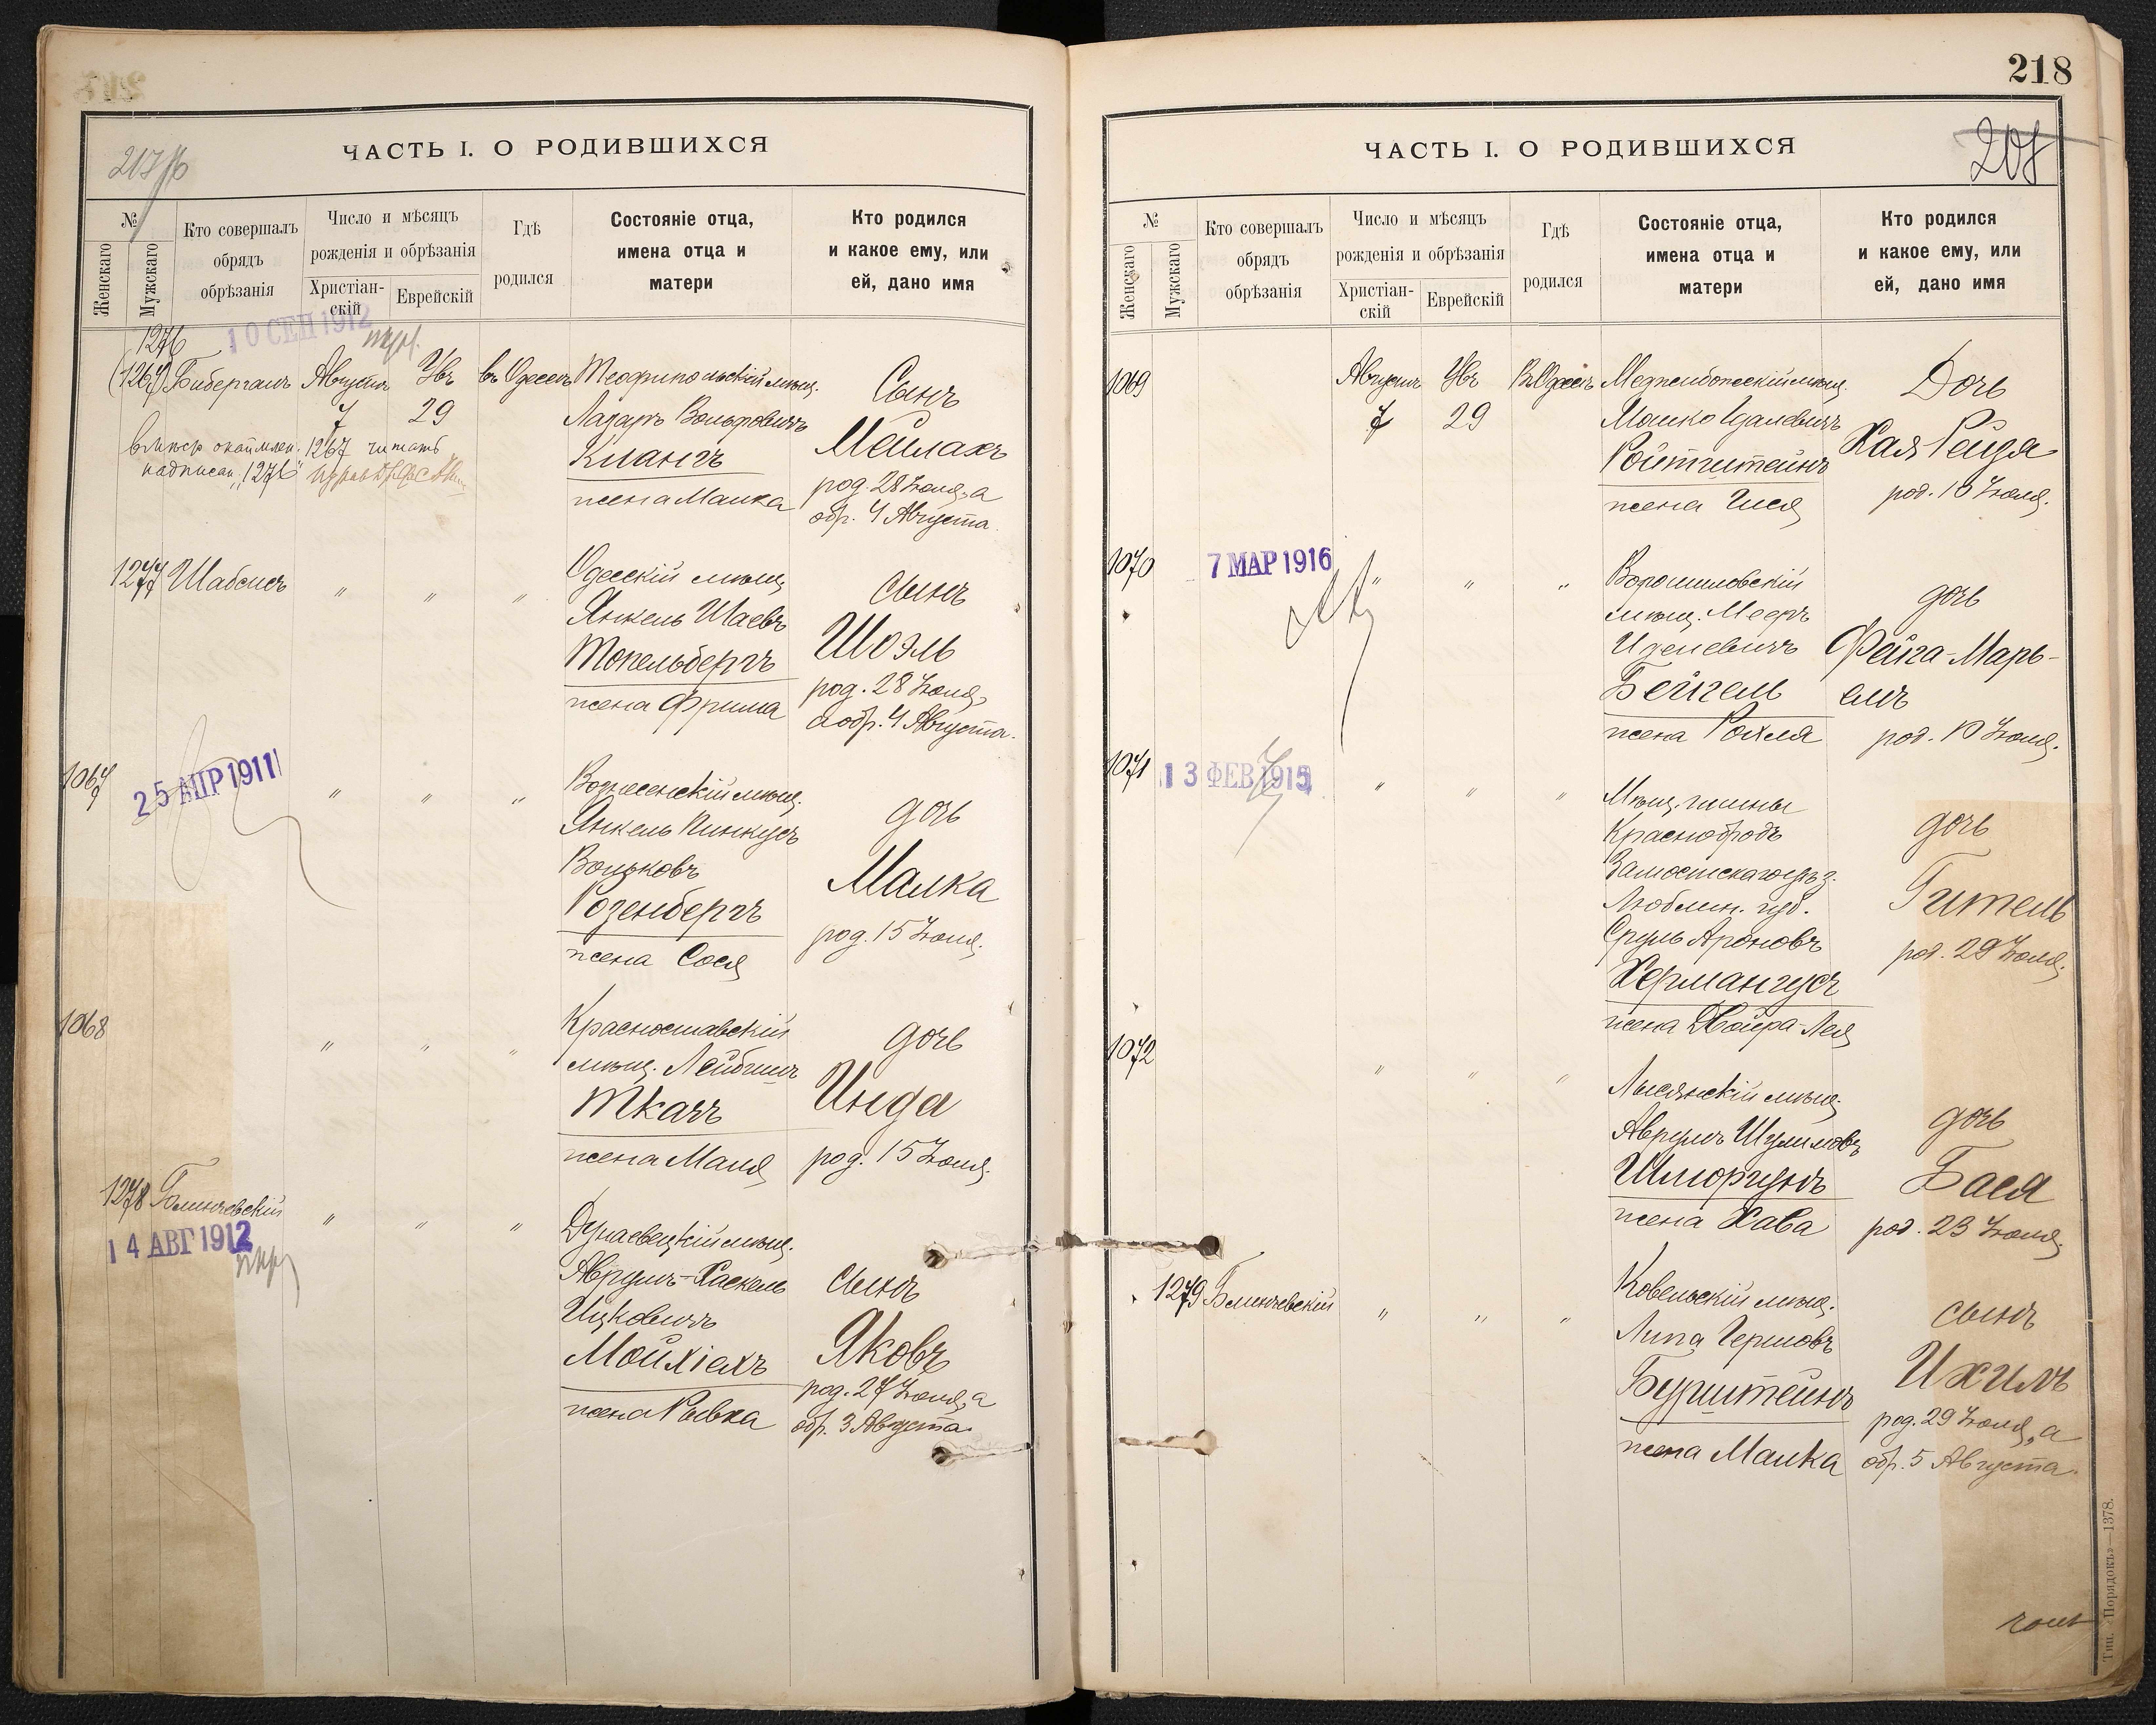 218
ЧАСТЬ I. О РОДИВШИХСЯ
№
Женскаго
Мужскаго
Кто совершалъ
обрядъ
обрѣзанія
Число и мѣсяцъ
рожденія и обрѣзанія
Христіан-
скій
Еврейскій
Гдѣ
родился
Состояніе отца,
имена отца и
матери
Кто родился
и какое ему, или
ей, дано имя
10 СЕН 1912
1276
(1267) Бибергалъ АвгустаУвъ въ Одессѣ Теофипольскій мѣщ. Сынъ
7 29 Лазарь Вольфовичъ
вмѣсто 1267 читать
надписан. "1276"
Кіангъ Мейлахъ
жена Малка
род. 28 Іюля, а
обр. 4 Августа.
1277 Шабсисъ " " "
Одесскій мѣщ. Сынъ
Янкель Шаевъ
Топельбергъ Шоэль
жена Фрима
род. 28 Іюля,
а обр. 4 Августа.
1067
25 АПР 1911 " " "
Вознесенскій мѣщ. дочь
Янкель Пинкусъ
Вольковъ Малка
Розенбергъ
жена Сося
род. 15 Іюля.
1068 " " "
Красноставскій дочь
мѣщ. Лейбишъ
Ткачъ Инда
жена Маля род. 15 Іюля.
1278 Блинчевскій " " "
14 АВГ 1912
Дунаевецкій мѣщ.
Аврумъ-Хаскель сынъ
Ицковичъ
Мойхіехъ Яковъ
жена Рывка
род. 27 Іюля, а
обр. 3 Августа.
218
208
ЧАСТЬ I. О РОДИВШИХСЯ
№
Женскаго
Мужскаго
Кто совершалъ
обрядъ
обрѣзанія
Число и мѣсяцъ
рожденія и обрѣзанія
Христіан-
скій
Еврейскій
Гдѣ
родился
Состояніе отца,
имена отца и
матери
Кто родился
и какое ему, или
ей, дано имя
1069 Августа Увъ Въ Одессѣ Меджибожскій мѣщ. Дочь
7 29 Мошко Удалевичъ
Ройтштейнъ Хая Рейзя
жена Гися род. 10 Іюля.
1070 7 МАР 1916 " " "
Ворошиловскій дочь
мѣщ. Мееръ
Иделевичъ Фейга-Марь-
Бейгель емъ
жена Рохля род. 10 Іюля.
1071 13 ФЕВ 1915 " " "
Мѣщ. гмины
Краснобродъ дочь
Замостскаго уѣз.
Люблин. губ. Гитель
Сруль Ароновъ род. 29 Іюля.
Хермангусъ
жена Двойра-Лея
1072 " " "
Лысянскій мѣщ. дочь
Аврумъ Шулимовъ
Шморгунъ Бася
жена Хава род. 23 Іюля.
1279 Блинчевскій " " "
Ковельскій мѣщ. сынъ
Липа Гершовъ
Бурштейнъ Ихилъ
жена Малка
род. 29 Іюля, а
обр. 5 Августа.
Тип. «Порядокъ»—1378.